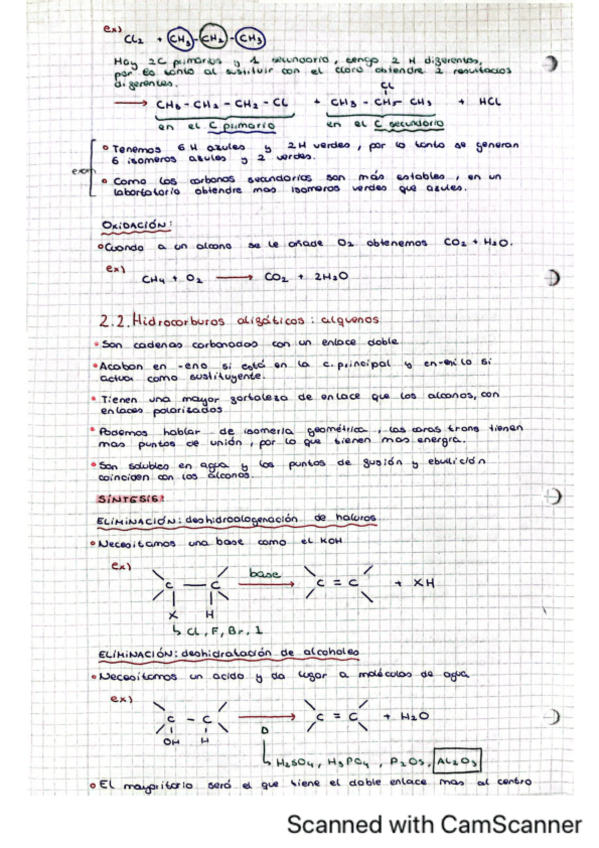 ex)
Cl2 + CH3-CH2-CH3
Hay 2C primarios y 1 secundario, tengo 2 H diferentes,
por lo tanto al sustituir con el cloro obtendre 2 resultados
diferentes.
Cl
→ CH3-CH2-CH2-Cl + CH3-CH-CH3 + HCl
en el C primario en el C secundario
• Tenemos 6H azules y 2H verdes, por lo tanto se generan
6 isomeros azules y 2 verdes.
• Como los carbonos secundarios son más estables, en un
laboratorio obtendre mas isomeros verdes que azules.
OXIDACIÓN:
• Cuando a un alcano se le añade O2 obtenemos CO2 + H2O.
ex)
CH4 + O2 → CO2 + 2H2O
2.2. Hidrocarburos alifáticos: alquenos
• Son cadenas carbonadas con un enlace doble
• Acaban en -eno si está en la c. principal y en -enilo si
actua como sustituyente.
• Tienen una mayor fortaleza de enlace que los alcanos, con
enlaces polarizados
• Podemos hablar de isomería geométrica, las caras trans tienen
mas puntos de unión, por lo que tienen mas energía.
• Son solubles en agua y los puntos de fusión y ebullición
coinciden con los alcanos.
SÍNTESIS:
ELIMINACIÓN: deshidroalogenación de haluros
• Necesitamos una base como el KOH
ex)
C — C base → C = C + XH
X H
↳ Cl, F, Br, I
ELIMINACIÓN: deshidratación de alcoholes
• Necesitamos un acido y da lugar a moléculas de agua
ex)
C - C → C = C + H2O
OH H
↳ H2SO4, H3PO4, P2O5, Al2O3
• El mayoritario será el que tiene el doble enlace mas al centro
Scanned with CamScanner